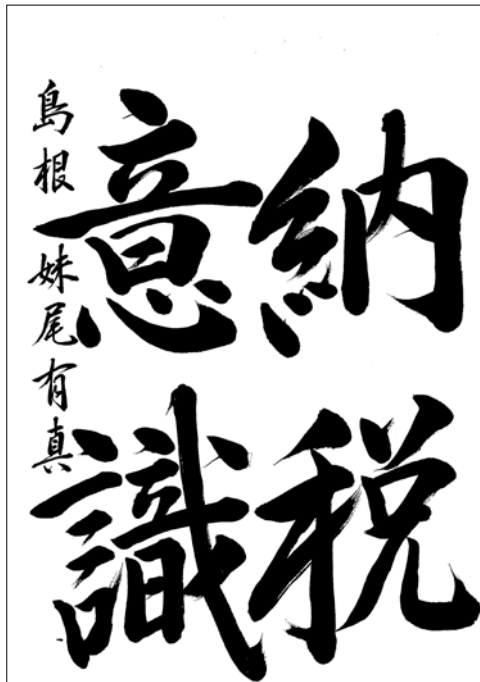 納税
意識
島根 妹尾有真